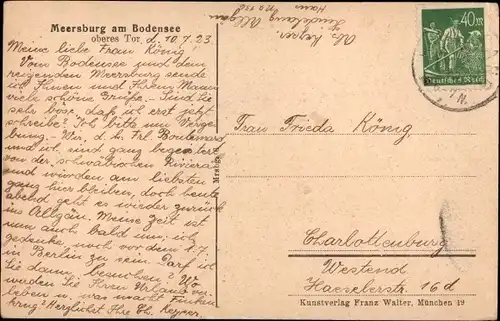 Meersburg am Bodensee
oberes Tor. d. 10.7.23
Meine liebe Frau König!
Vom Bodensee und dem
reizenden Meersburg sende
ich Ihnen und Ihrem Mann
viele schöne Grüße. – Sind Sie
sehr böse, daß ich erst jetzt
schreibe? Ich bitte um Verge-
bung. – Wir, d. h. Frl.
und ich sind ganz begeistert
von der schwäbischen Riviera
und würden am liebsten
ganz hier bleiben, doch heute
abend geht es wieder zurück
ins Allgäu. Meine Zeit ist
nun auch bald um; ich
gedenke, noch vor dem
in Berlin zu sein. Darf ich
Sie dann besuchen? Wo
werden Sie Ihren Urlaub ver-
leben u. was macht
Herzlichst Ihre Ch. Keyser.
Abs. Keyser.
Allgäu
Haus
40 M
Deutsches Reich
Frau Frieda König
Charlottenburg
Westend
Haeselerstr. 16 d
Kunstverlag Franz Walter, München 19